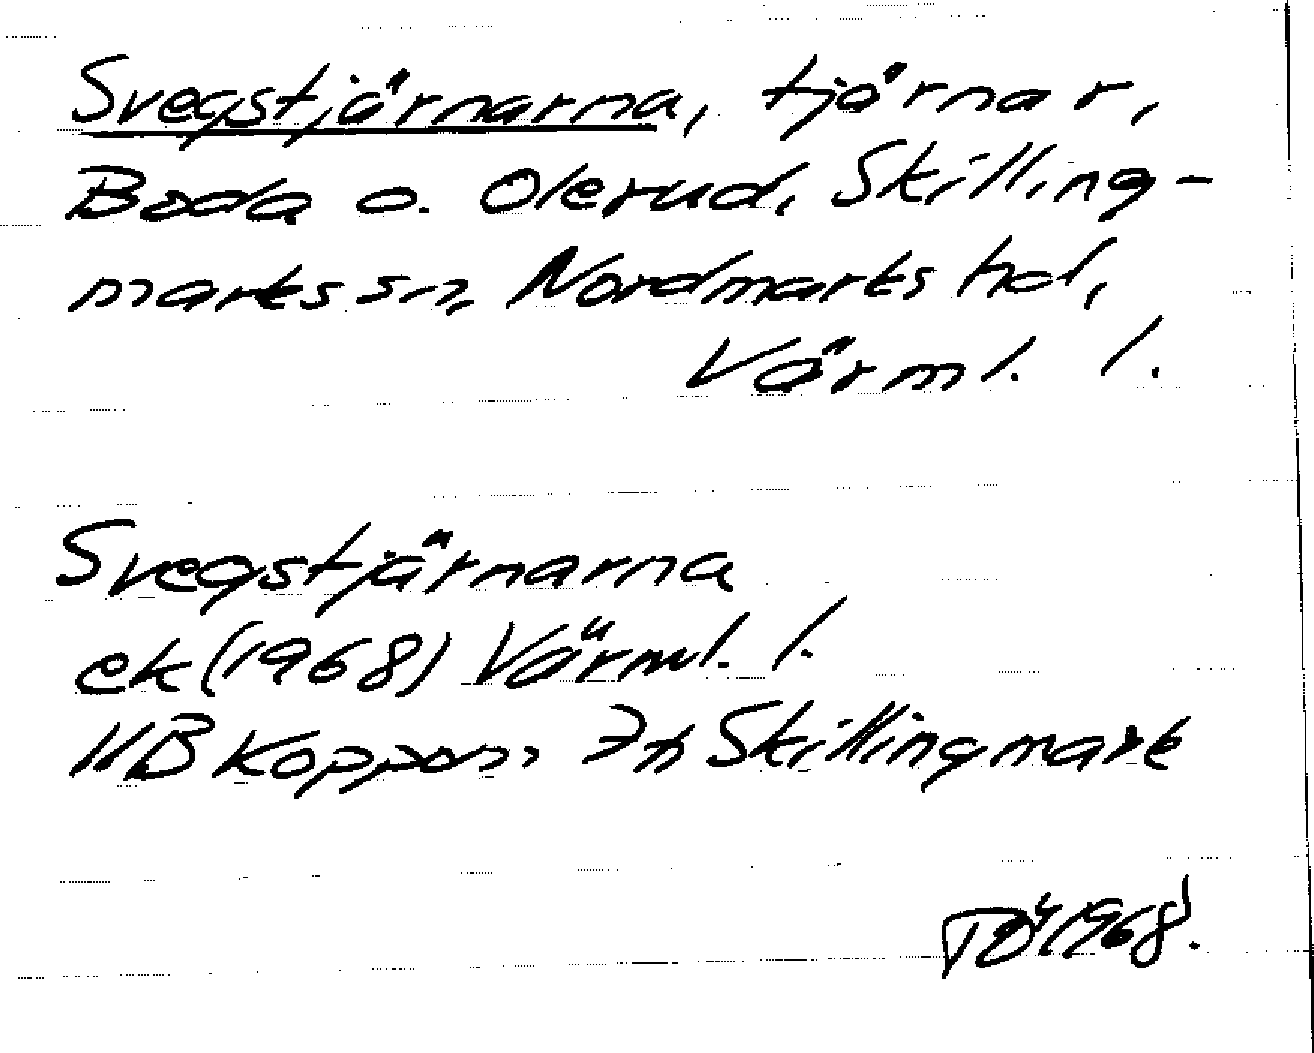 Svegstjärnarna, tjärnar,
Boda o. Olerud, Skilling-
marks sn, Nordmarks hd,
Värml. l.
Svegstjärnarna
ek (1968) Värml. l.
11B Koppom 7h Skillingmark
1968.